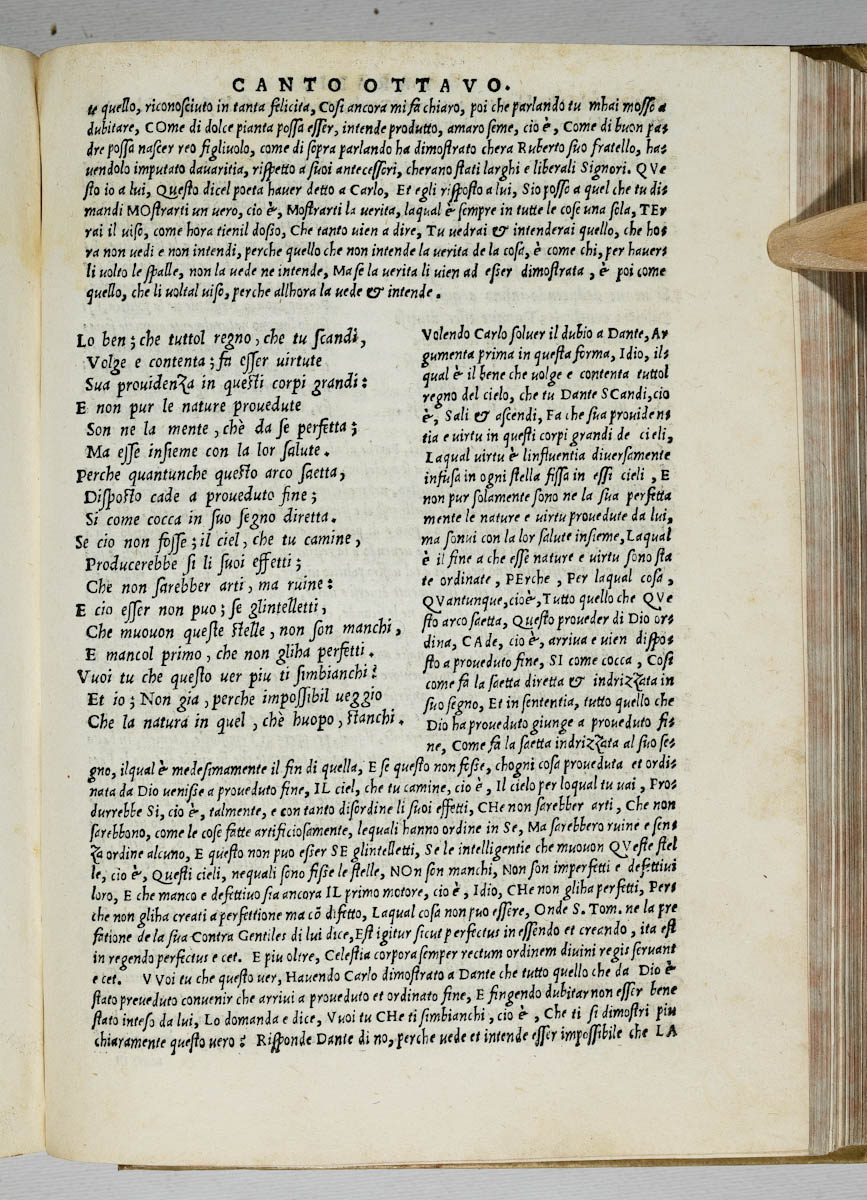 CANTO OTTAVO.
te quello, riconosciuto in tanta felicita, Cosi ancora mi fa chiaro, poi che parlando tu mhai mosso a
dubitare, COme di dolce pianta possa esser, intende produtto, amaro seme, cio è, Come di buon pa-
dre possa nascer reo figliuolo, come di sopra parlando ha dimostrato chera Ruberto suo fratello, ha-
uendolo imputato dauaritia, rispetto a suoi antecessori, cherano stati larghi e liberali Signori. QVe
sto io a lui, Questo dicel poeta hauer detto a Carlo, Et egli risposto a lui, Sio posso a quel che tu di-
mandi MOstrarti un uero, cio è, Mostrarti la uerita, laqual è sempre in tutte le cose una sola, TEr
rai il uiso, come hora tienil dosso, Che tanto uien a dire, Tu uedrai & intenderai quello, che ho-
ra non uedi e non intendi, perche quello che non intende la uerita de la cosa, è come chi, per hauer-
li uolto le spalle, non la uede ne intende, Ma se la uerita li uien ad esser dimostrata, è poi come
quello, che li uoltal uiso, perche allhora la uede & intende.
Lo ben; che tuttol regno, che tu scandi,
Volge e contenta; fa esser uirtute
Sua prouidenza in questi corpi grandi:
E non pur le nature prouedute
Son ne la mente, chè da se perfetta;
Ma esse insieme con la lor salute.
Perche quantunche questo arco saetta,
Disposto cade a proueduto fine;
Si come cocca in suo segno diretta.
Se cio non fosse; il ciel, che tu camine,
Producerebbe si li suoi effetti;
Che non sarebber arti, ma ruine:
E cio esser non puo; se glintelletti,
Che muouon queste stelle, non son manchi,
E mancol primo, che non gliha perfetti.
Vuoi tu che questo uer piu ti simbianchi?
Et io; Non gia, perche impossibil ueggio
Che la natura in quel, chè huopo, stanchi.
Volendo Carlo soluer il dubio a Dante, Ar
gumenta prima in questa forma, Idio, il-
qual è il bene che uolge e contenta tuttol
regno del cielo, che tu Dante SCandi, cio
è, Sali & ascendi, Fa che sua prouiden-
tia e uirtu in questi corpi grandi de cieli,
Laqual uirtu è linfluentia diuersamente
infusa in ogni stella fissa in essi cieli, E
non pur solamente sono ne la sua perfetta
mente le nature e uirtu prouedute da lui,
ma sonui con la lor salute insieme, Laqual
è il fine a che esse nature e uirtu sono sta
te ordinate, PErche, Per laqual cosa,
QVantunque, cioè, Tutto quello che QVe
sto arco saetta, Questo proueder di Dio or-
dina, CAde, cio è, arriua e uien dispo-
sto a proueduto fine, SI come cocca, Cosi
come fa la saetta diretta & indrizzata in
suo segno, Et in sententia, tutto quello che
Dio ha proueduto giunge a proueduto fi-
ne, Come fa la saetta indrizzata al suo se-
gno, ilqual è medesimamente il fin di quella, E se questo non fosse, chogni cosa proueduta et ordi-
nata da Dio uenisse a proueduto fine, IL ciel, che tu camine, cio è, Il cielo per loqual tu uai, Pro-
durrebbe Si, cio è, talmente, e con tanto disordine li suoi effetti, CHe non sarebber arti, Che non
sarebbono, come le cose fatte artificiosamente, lequali hanno ordine in Se, Ma sarebbero ruine e sen-
za ordine alcuno, E questo non puo esser SE glintelletti, Se le intelligentie che muouon QVeste stel
le, cio è, Questi cieli, nequali sono fisse le stelle, NOn son manchi, Non son imperfetti e defettiui
loro, E che manco e defettiuo sia ancora IL primo motore, cio è, Idio, CHe non gliha perfetti, Per-
che non gliha creati a perfettione ma cõ difetto, Laqual cosa non puo essere, Onde S. Tom. ne la pre
fatione de la sua Contra Gentiles di lui dice, Est igitur sicut perfectus in essendo et creando, ita est
in regendo perfectus e cet. E piu oltre, Celestia corpora semper rectum ordinem diuini regis seruant
e cet. VVoi tu che questo uer, Hauendo Carlo dimostrato a Dante che tutto quello che da Dio è
stato preueduto conuenir che arriui a proueduto et ordinato fine, E fingendo dubitar non esser bene
stato inteso da lui, Lo domanda e dice, Vuoi tu CHe ti simbianchi, cio è, Che ti si dimostri piu
chiaramente questo uero? Risponde Dante di no, perche uede et intende esser impossibile che LA